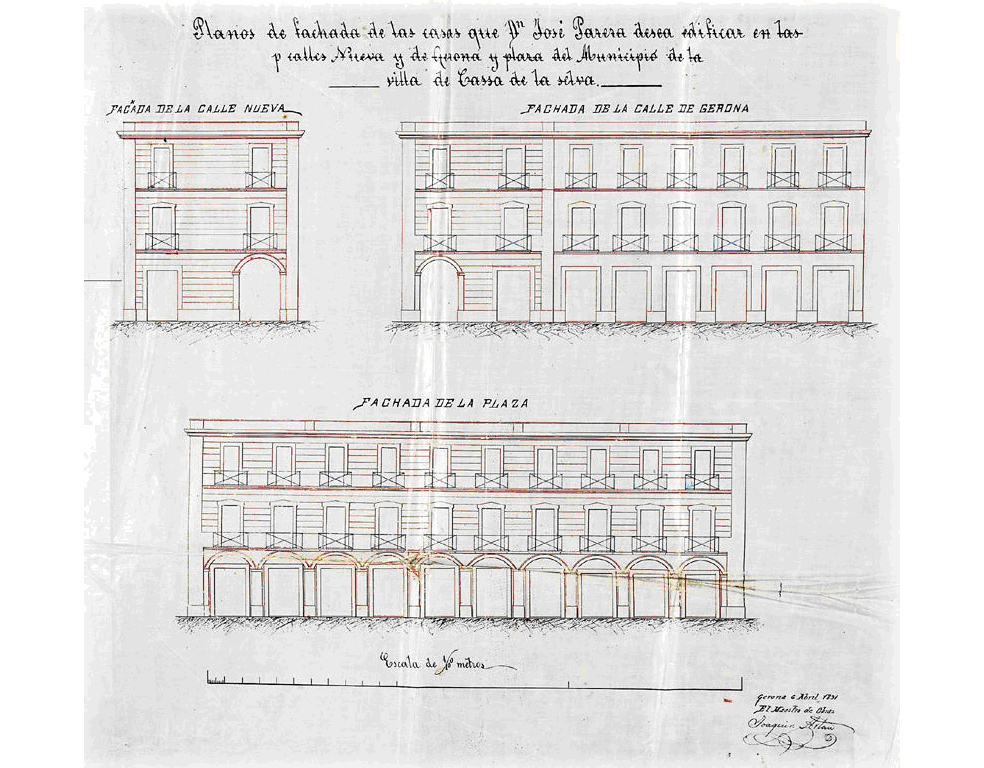 Planos de fachada de las casas que Dn José Parera desea edificar en las
calles Nueva y de Gerona y plaza del Municipio de la
villa de Cassa de la selva.
FACADA DE LA CALLE NUEVA
FACHADA DE LA CALLE DE GERONA
FACHADA DE LA PLAZA
Escala de metros
Gerona 6 Abril
El Maestro de Obras
Joaquin